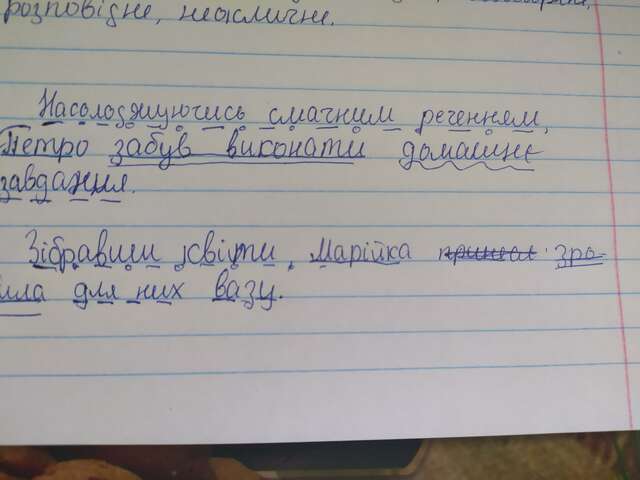 розповідне, неокличне.
Насолоджуючись смачним реченням,
Петро забув виконати домашнє
завдання.
Зібравши квіти, Марійка зро-
била для них вазу.